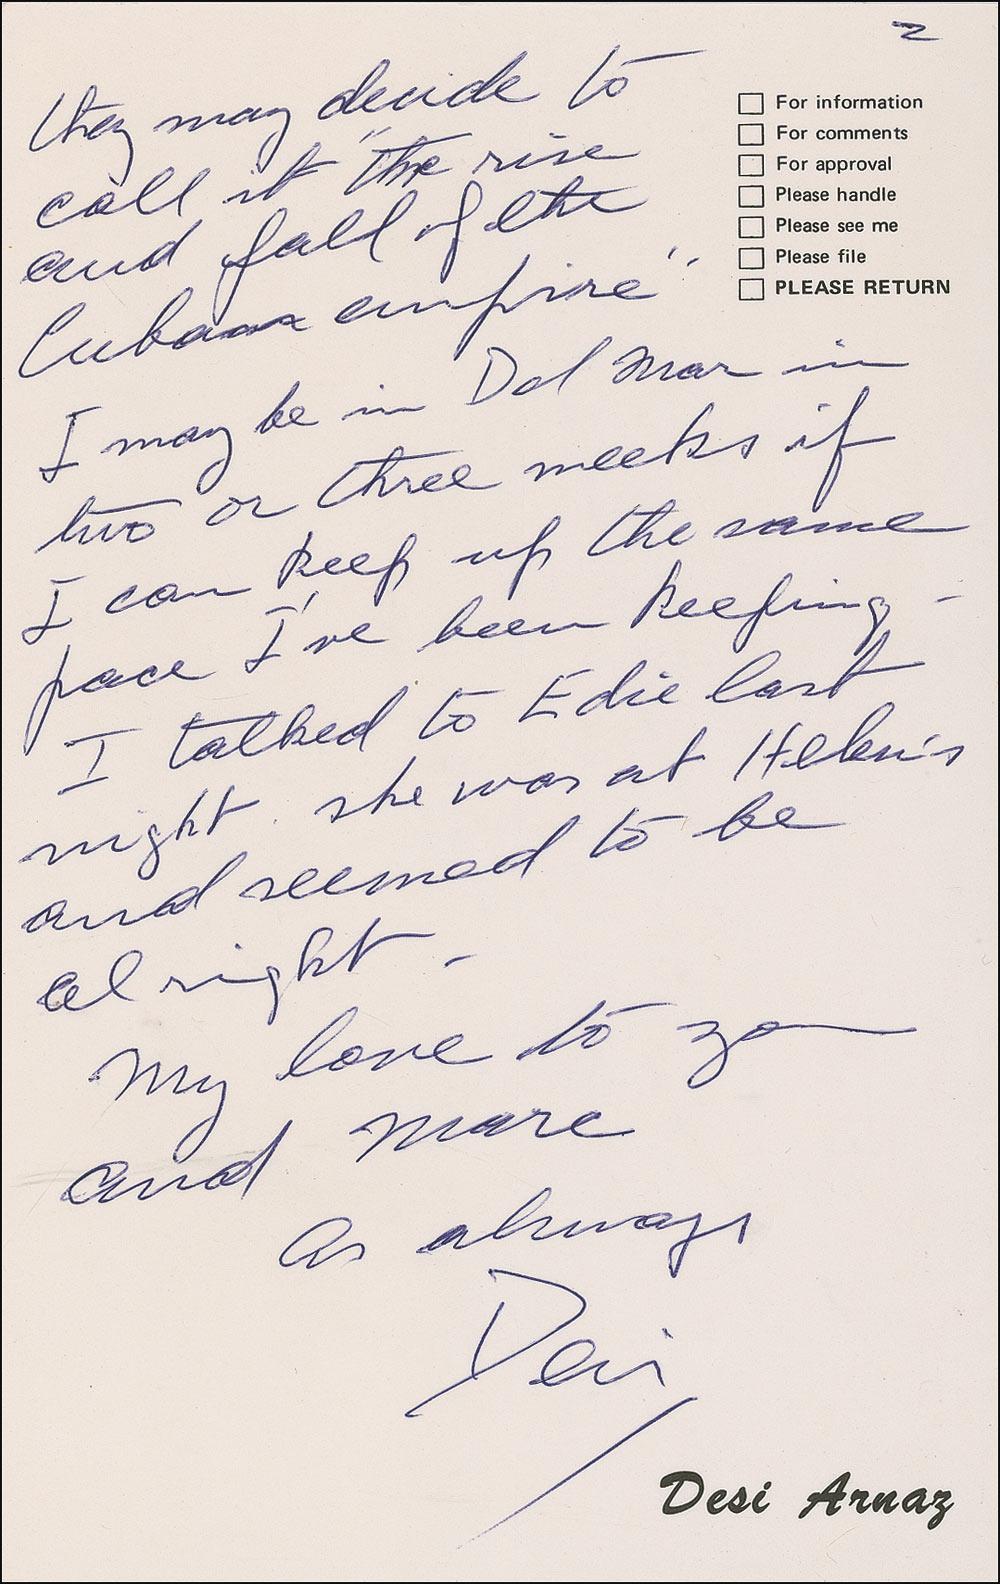 2
For information
For comments
For approval
Please handle
Please see me
Please file
PLEASE RETURN
they may decide to
call it "the rise
and fall of the
Cuban empire"
I may be in Del Mar in
two or three weeks if
I can keep up the same
pace I've been keeping -
I talked to Edie last
night. she was at Helen's
and seemed to be
alright -
My love to you
and Marc
As always
Desi
Desi Arnaz